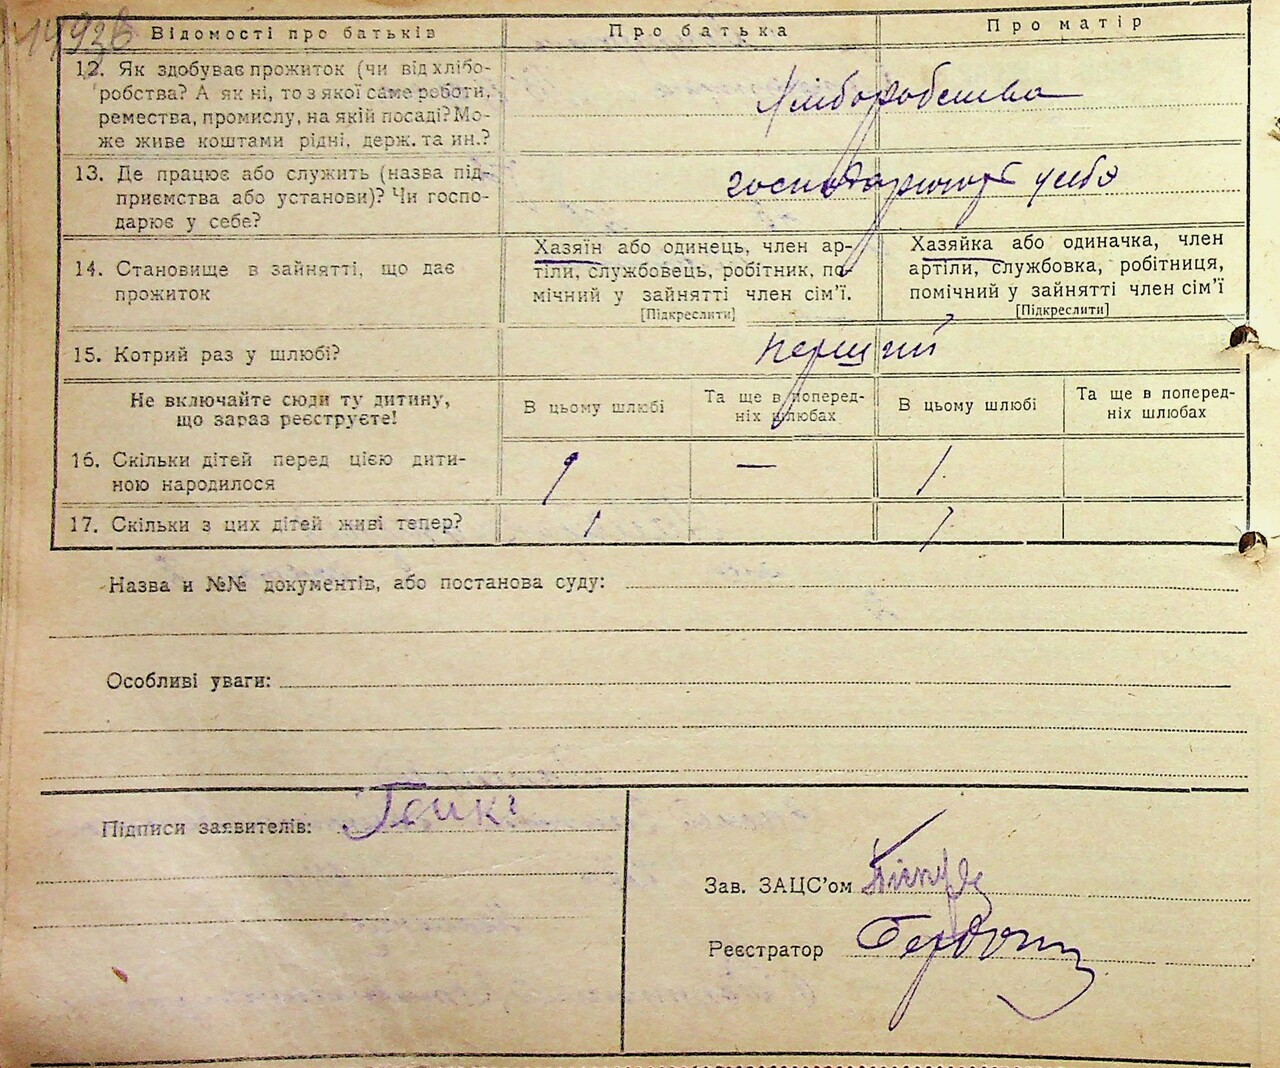 Відомості про батьків
Про батька
Про матір
12. Як здобуває прожиток (чи від хлібо-
робства? А як ні, то з якої саме роботи,
ремества, промислу, на якій посаді? Мо-
же живе коштами рідні, держ. та ин.?
Хліборобства
13. Де працює або служить (назва під-
приємства або установи)? Чи госпо-
дарює у себе?
господарюют у себя
14. Становище в зайнятті, що дає
прожиток
Хазяїн або одинець, член ар-
тіли, службовець, робітник, по-
мічний у зайнятті член сім'ї.
[Підкреслити]
Хазяйка або одиначка, член
артіли, службовка, робітниця,
помічний у зайнятті член сім'ї
[Підкреслити]
15. Котрий раз у шлюбі?
перший
Не включайте сюди ту дитину,
що зараз реєструєте!
В цьому шлюбі
Та ще в поперед-
ніх шлюбах
В цьому шлюбі
Та ще в поперед-
ніх шлюбах
16. Скільки дітей перед цією дити-
ною народилося
1 — 1
17. Скільки з цих дітей живі тепер?
1 1
Назва и №№ документів, або постанова суду:
Особливі уваги:
Підписи заявителів:
Зав. ЗАЦС'ом
Реєстратор